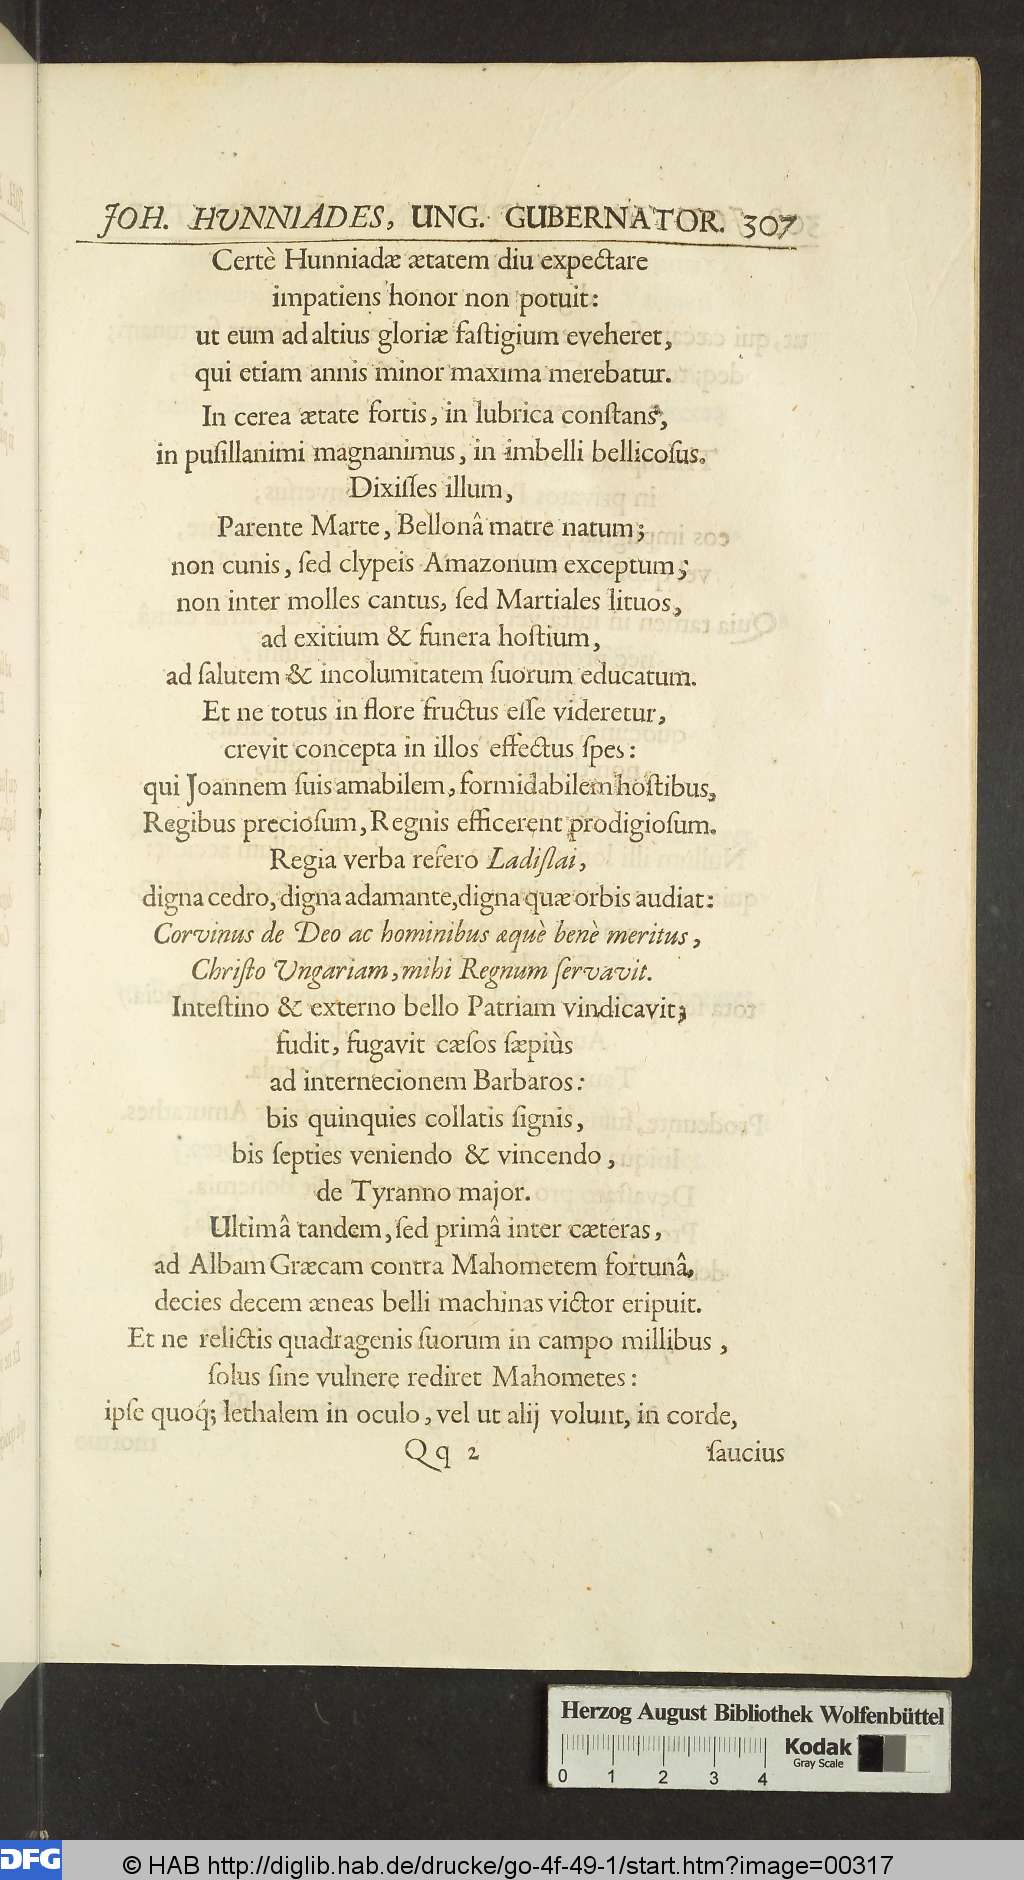 JOH. HVNNIADES, UNG. GUBERNATOR. 307
Certè Hunniadæ ætatem diu expectare
impatiens honor non potuit:
ut eum ad altius gloriæ faſtigium eveheret,
qui etiam annis minor maxima merebatur.
In cerea ætate fortis, in lubrica conſtans,
in puſillanimi magnanimus, in imbelli bellicoſus.
Dixiſſes illum,
Parente Marte, Bellonâ matre natum;
non cunis, ſed clypeis Amazonum exceptum;
non inter molles cantus, ſed Martiales lituos,
ad exitium & funera hoſtium,
ad ſalutem & incolumitatem ſuorum educatum.
Et ne totus in flore fructus eſſe videretur,
crevit concepta in illos effectus ſpes:
qui Joannem ſuis amabilem, formidabilem hoſtibus,
Regibus precioſum, Regnis efficerent prodigioſum.
Regia verba refero Ladiſlai,
digna cedro, digna adamante, digna quæ orbis audiat:
Corvinus de Deo ac hominibus æquè benè meritus,
Chriſto Ungariam, mihi Regnum ſervavit.
Inteſtino & externo bello Patriam vindicavit;
fudit, fugavit cæſos ſæpiùs
ad internecionem Barbaros:
bis quinquies collatis ſignis,
bis ſepties veniendo & vincendo,
de Tyranno major.
Ultimâ tandem, ſed primâ inter cæteras,
ad Albam Græcam contra Mahometem fortunâ,
decies decem æneas belli machinas victor eripuit.
Et ne relictis quadragenis ſuorum in campo millibus,
ſolus ſine vulnere rediret Mahometes:
ipſe quoq́; lethalem in oculo, vel ut alij volunt, in corde,
Qq 2 ſaucius
Herzog August Bibliothek Wolfenbüttel
Kodak
Gray Scale
0 1 2 3 4
DFG © HAB http://diglib.hab.de/drucke/go-4f-49-1/start.htm?image=00317